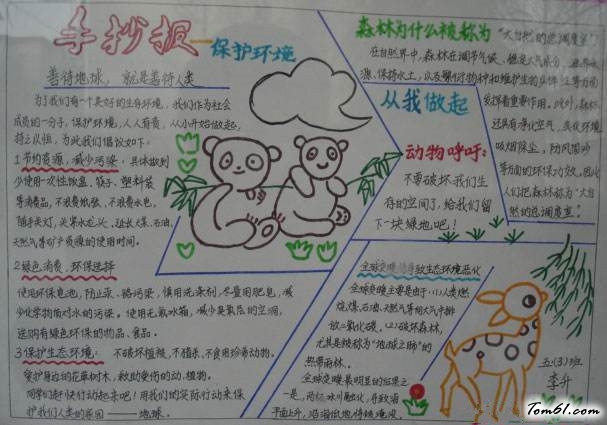 手抄报—保护环境
善待地球，就是善待人类
为了我们有一个美好的生存环境，我们作为社会
成员的一分子，保护环境，人人有责，从小开始做起，
持之以恒，为此我们倡议如下：
1节约资源，减少污染，具体做到
少使用一次性饭盒、筷子、塑料袋
等消费品，不浪费纸张、不浪费水电，
随手关灯，关紧水龙头，
天然气等矿产资源的使用时间。
2绿色消费，环保选择
使用环保电池，防止汞、镉污染，慎用洗涤剂，尽量用肥皂，减
少化学物质对水的污染。使用无氟冰箱，减少臭氧的空洞，
选购有绿色环保的物品、食品。
3保护生态环境，不破坏植被，不猎杀、不食用珍奇动物。
爱护身边的花草树木，救助受伤的动、植物。
同学们赶快行动起来吧！用我们的实际行动来保
护我们人类的家园——地球。
森林为什么被称为“大自然的总调度室”
在自然界中，森林在调节气候、
源、保持水土，以及繁衍物种和维护生态
发挥着重要作用。此外，森林
还具有净化空气，美化环境
吸烟除尘，防风固沙
等方面的环保功效。因此
人们把森林称为“大自
然的总调度室”！
从我做起
动物呼吁：
不要破坏我们生
存的空间了，给我们留
下一块绿地吧！
全球变暖导致生态环境恶化
全球变暖主要是由于：(1)人类燃
烧煤、石油、天然气等向大气中排
放二氧化碳，(2)破坏森林，
尤其是被称为“地球之肺”的
热带雨林。
全球变暖最明显的后果之
一是，两极冰川融化，导致海
平面上升，沿海低地
五(3)班
李升
Tom61.com